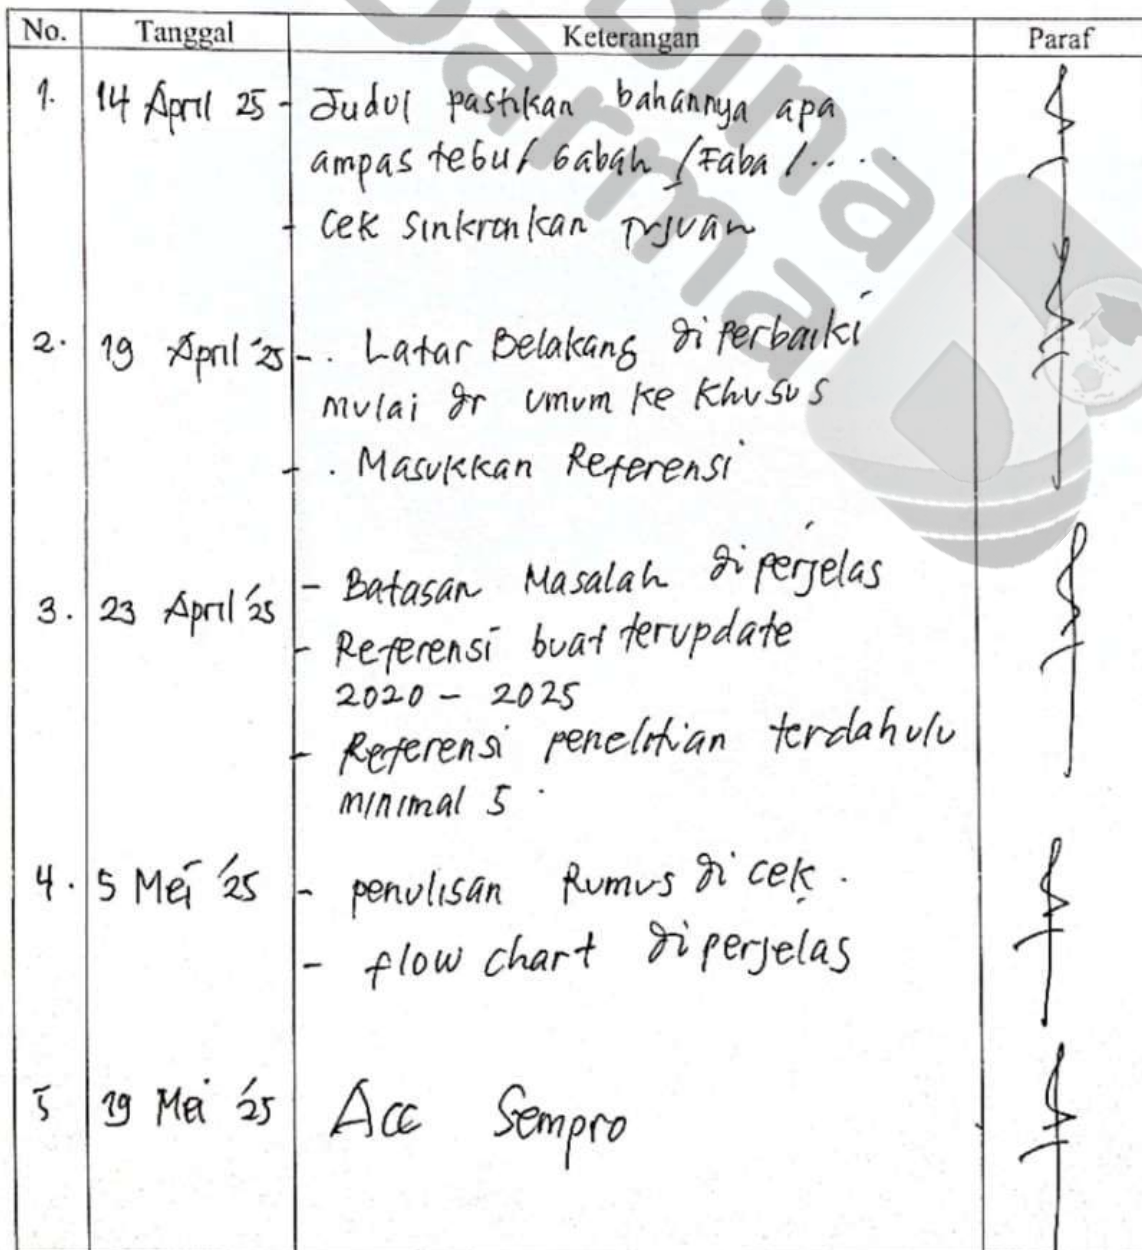 Bina
Darma
No. Tanggal Keterangan Paraf
1. 14 April 25 - Judul pastikan bahannya apa
ampas tebu / Gabah / Faba / ....
- Cek Sinkronkan Tujuan
2. 19 April '25 - . Latar Belakang diperbaiki
mulai dr umum ke Khusus
- . Masukkan Referensi
- Batasan Masalah diperjelas
3. 23 April '25
- Referensi buat terupdate
2020 - 2025
- Referensi penelitian terdahulu
minimal 5
4. 5 Mei '25 - penulisan Rumus di cek.
- flow chart diperjelas
5 19 Mei '25 Acc Sempro